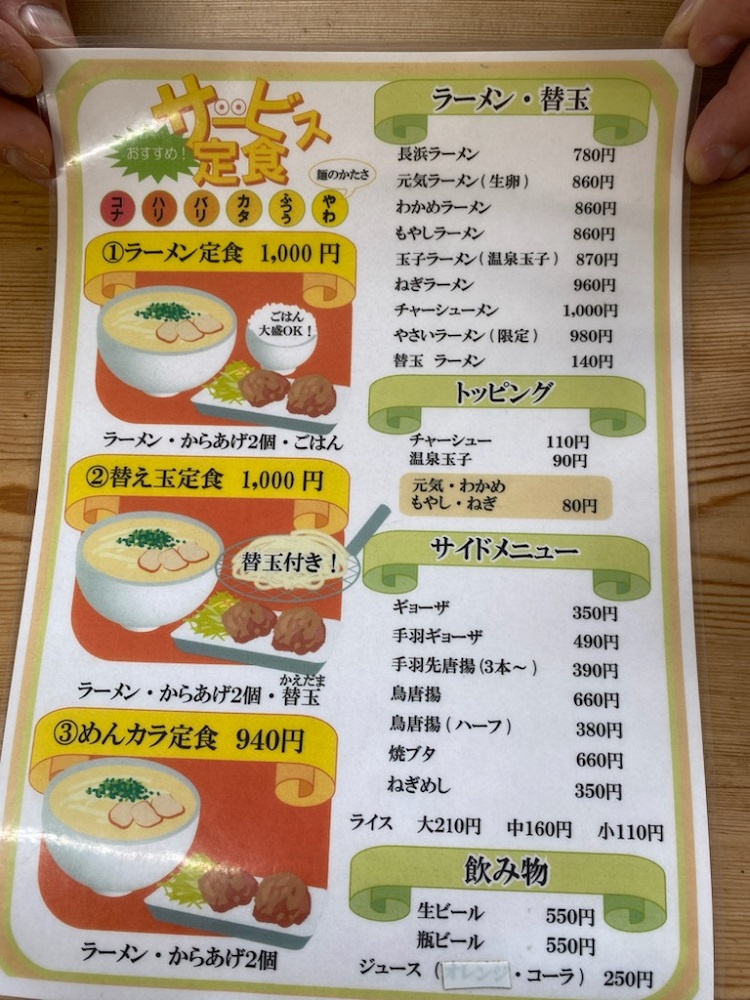 サービス
定食
おすすめ！
麺のかたさ
コナ ハリ バリ カタ ふつう やわ
①ラーメン定食 1,000円
ごはん
大盛OK！
ラーメン・からあげ2個・ごはん
②替え玉定食 1,000円
替玉付き！
かえだま
ラーメン・からあげ2個・替玉
③めんカラ定食 940円
ラーメン・からあげ2個
ラーメン・替玉
長浜ラーメン 780円
元気ラーメン(生卵) 860円
わかめラーメン 860円
もやしラーメン 860円
玉子ラーメン(温泉玉子) 870円
ねぎラーメン 960円
チャーシューメン 1,000円
やさいラーメン(限定) 980円
替玉 ラーメン 140円
トッピング
チャーシュー 110円
温泉玉子 90円
元気・わかめ
もやし・ねぎ 80円
サイドメニュー
ギョーザ 350円
手羽ギョーザ 490円
手羽先唐揚(3本～) 390円
鳥唐揚 660円
鳥唐揚(ハーフ) 380円
焼ブタ 660円
ねぎめし 350円
ライス 大210円 中160円 小110円
飲み物
生ビール 550円
瓶ビール 550円
ジュース (オレンジ・コーラ) 250円